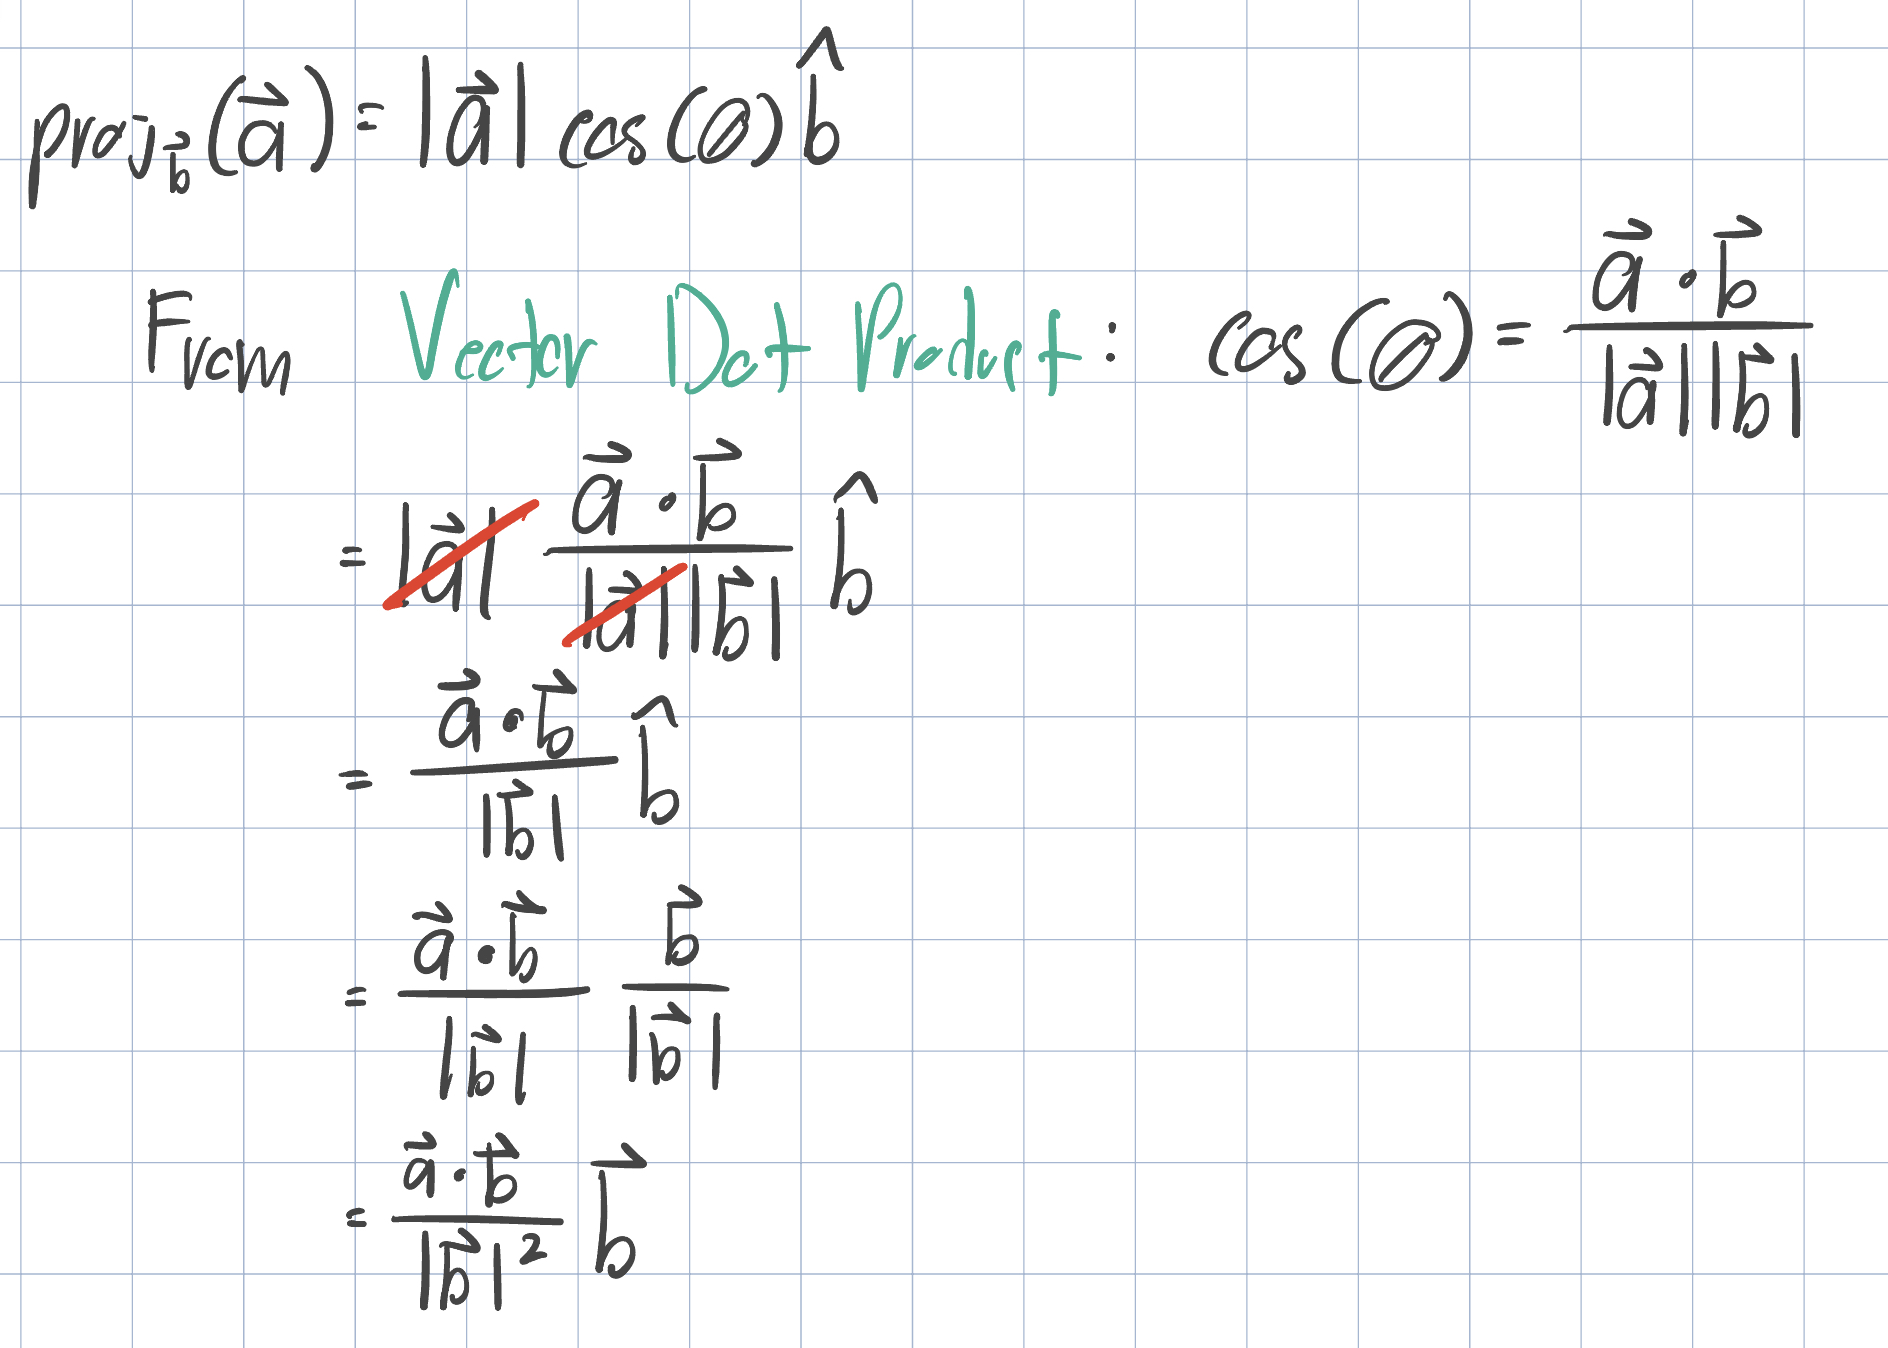 proj_{\vec{b}}(\vec{a}) = |\vec{a}| cos(θ) \hat{b}
From Vector Dot Product: cos(θ) = \frac{\vec{a} \cdot \vec{b}}{|\vec{a}||\vec{b}|}
= |\vec{a}| \frac{\vec{a} \cdot \vec{b}}{|\vec{a}||\vec{b}|} \hat{b}
= \frac{\vec{a} \cdot \vec{b}}{|\vec{b}|} \hat{b}
= \frac{\vec{a} \cdot \vec{b}}{|\vec{b}|} \frac{\vec{b}}{|\vec{b}|}
= \frac{\vec{a} \cdot \vec{b}}{|\vec{b}|^2} \vec{b}